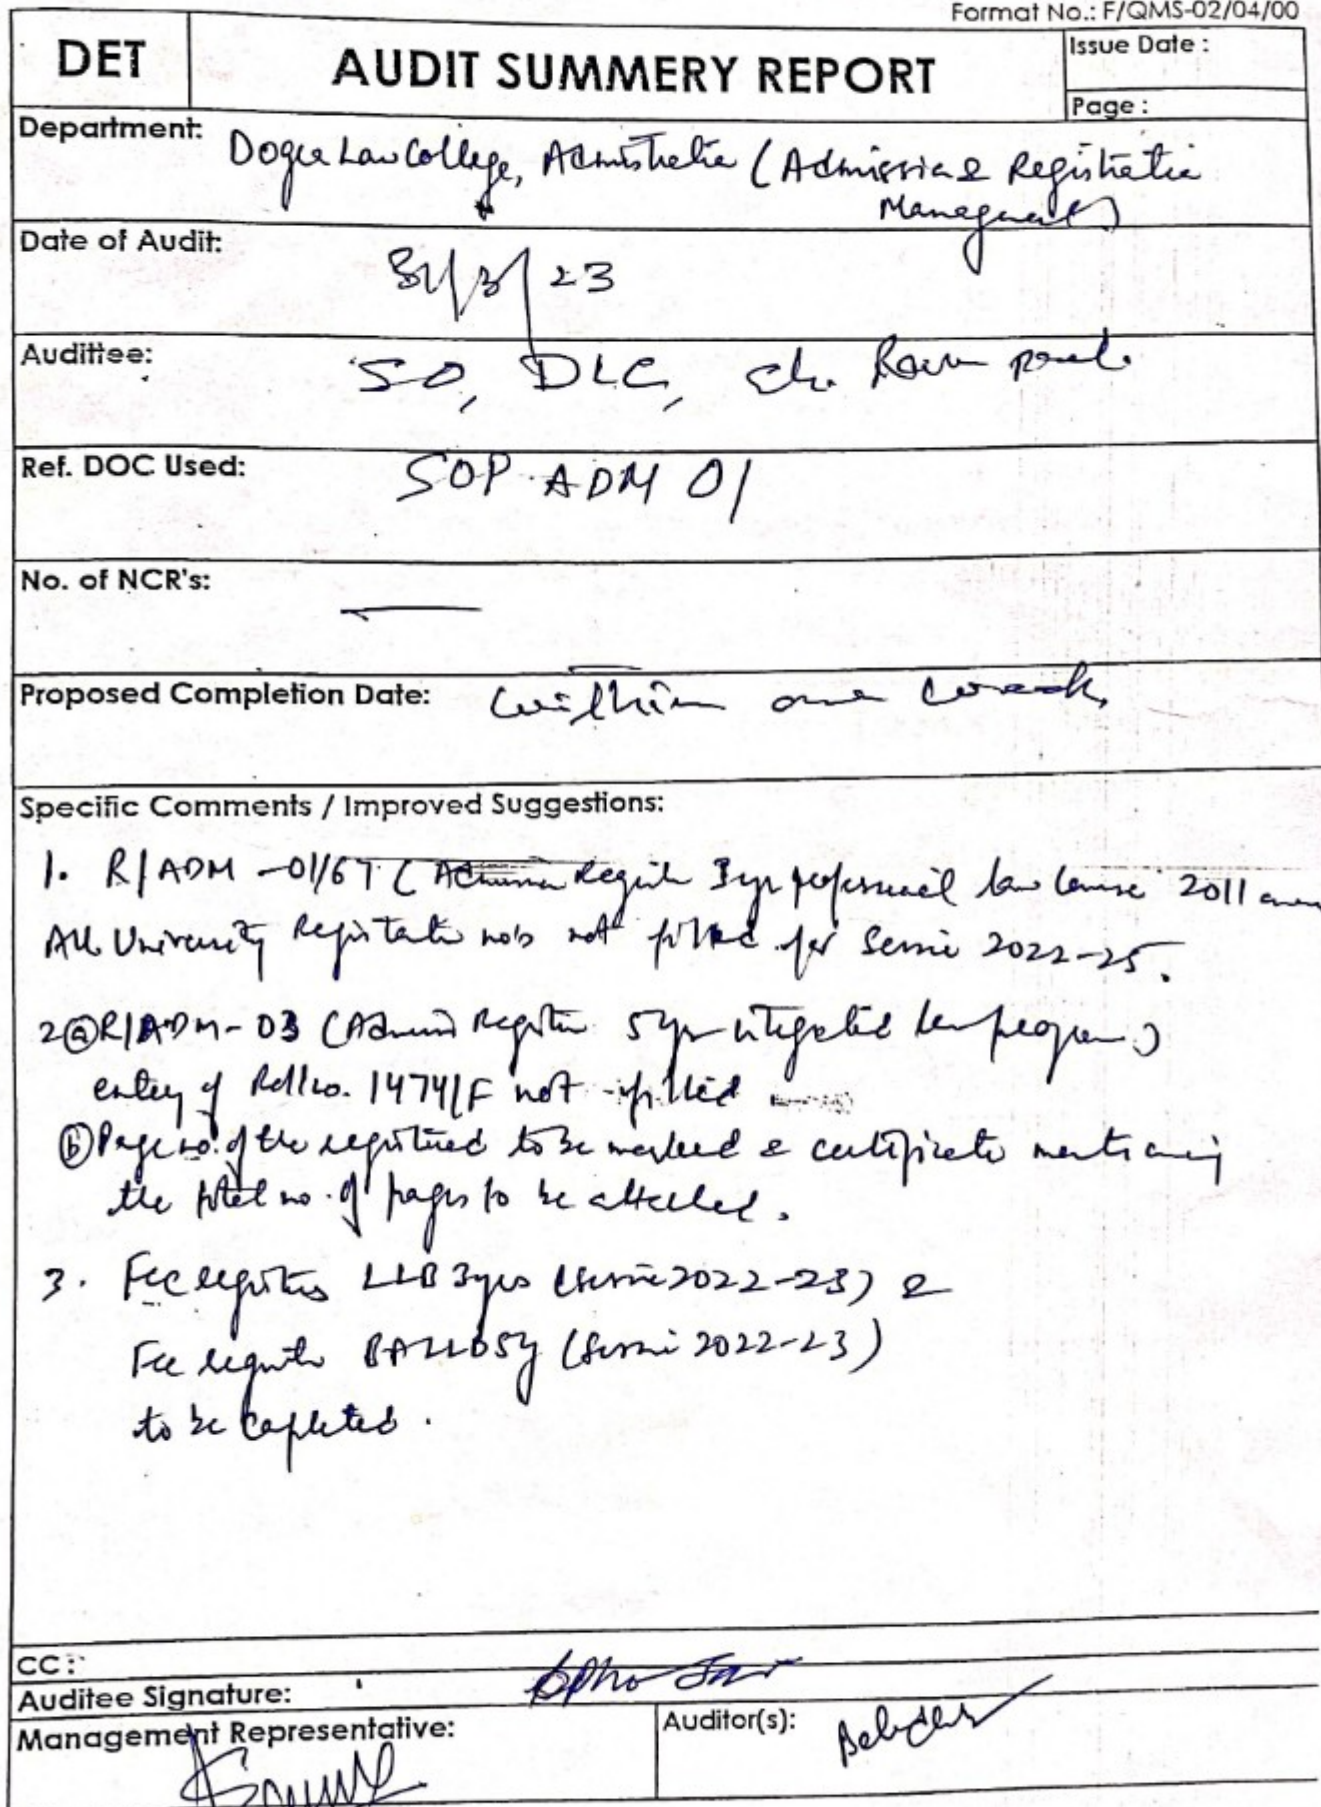 Format No.: F/QMS-02/04/00
DET
AUDIT SUMMERY REPORT
Issue Date :
Page :
Department: Dogra Law College, Administration (Admission & Registration
Management)
Date of Audit: 31/3/23
Audittee: SO, DLC, Sh. Ram
Ref. DOC Used: SOP ADM 01
No. of NCR's: —
Proposed Completion Date: within one week
Specific Comments / Improved Suggestions:
1. R/ADM -01/67 ( Admission Register 3yr professional law course 2011
All University Registration no's not filled for Session 2022-25.
2 (a) R/ADM-03 (Admission Register 5yr integrated law program)
entry of Roll no. 1474/F not filled
(b) Page no. of the to be marked & certificate mentioning
the total no. of pages to be attached.
3. Fee registers LLB 3yrs (Session 2022-23) &
Fee register BALLB 5y (Session 2022-23)
to be completed.
CC :
Auditee Signature:
Management Representative:
Auditor(s):